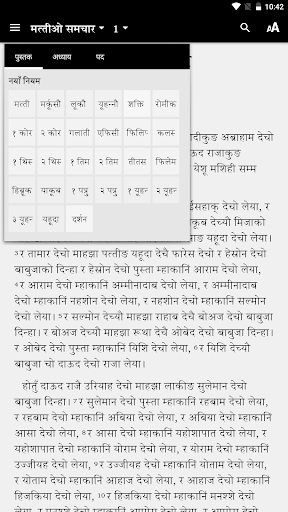 10:42
मत्तीओ समचार 1
पुस्तक अध्याय पद
नयाँ नियम
मत्ती मर्कूसी लूकौ यूहन्नौ शक्ति रोमीक
१ कोर २ कोर गलाती एफिसी फिलिप कलस
१ थिस् २ थिस् १ तिम २ तिम तीतस फिलेम
हिब्रूक याकूब १ पत्रु २ पत्रु १ यूहन २ यूहन
३ यूहन यहूदा दर्शन
दीकुङ अब्राहाम देचो
दाऊद राजाकुङ
येशू मशिही सम्म
ईसहाक् देचो लेया,
कूब देच्यौ मिजाको
लेया।
२र तामार देचो माहझा पत्तीङ यहूदा देचै फारेस देचो र हेस्रोन देचो
बाबुजाको दिन्हा र हेस्रोन देचो पुस्ता म्हाकानिं आराम देचो लेया,
४र आराम देचो म्हाकानिं अम्मीनादाब देचो लेया, र अम्मीनादाब
देचो म्हाकानिं नहशोन देचो लेया, र नहशोन देचो म्हाकानिं सल्मोन
देचो लेया। ५र सल्मोन देच्यौ माहझा राहाब देचै बोअज देचो बाबुजा
दिन्हा। र बोअज देच्यौ माहझा रूथा देचै ओबेद देचो बाबुजा दिन्हा।
र ओबेद देचो पुस्ता म्हाकानिं यिशि देचो लेया, ६र यिशि देच्यौ
बाबुजा चो दाऊद देचो राजा लेया।
होतुँ दाऊद राजै उरियाह देचो माहझा लाकीङ सुलेमान देचो
बाबुजा दिन्हा। ७र सुलेमान देचो पुस्ता म्हाकानिं रहबाम देचो लेया,
र रहबाम देचो म्हाकानिं अबिया देचो लेया, र अबिया देचो म्हाकानिं
आसा देचो लेया, ८र आसा देचो म्हाकानिं यहोशापात देचो लेया, र
यहोशापात देचो म्हाकानिं योराम देचो लेया, र योराम देचो म्हाकानिं
उज्जीयह देचो लेया, ९र उज्जीयह देचो म्हाकानिं योताम देचो लेया,
र योताम देचो म्हाकानिं आहाज देचो लेया, र आहाज देचो म्हाकानिं
हिजकिया देचो लेया, १०र हिजकिया देचो म्हाकानिं मनश्शे देचो